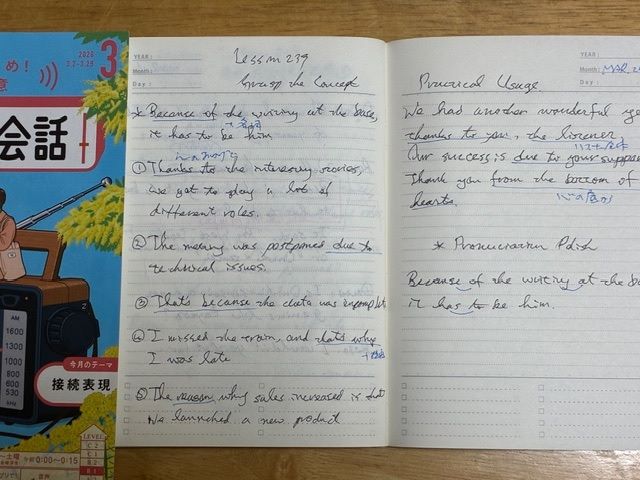 め!
意
2026
3.2-3.28
3
会話
AM
1600
1300
1000
800
600
530
kHz
今月のテーマ
接続表現
LEVEL
C 2
C 1
B 2
B 1
土曜
午前0:00~0:15
YEAR :
Month :
Day :
Lesson 239
Grasp the Concept
* Because of the writing at the base,
it has to be him
① Thanks to the interesting stories,
we got to play a lot of
different roles.
② The meeting was postponed due to
technical issues.
③ That's because the data was incomplete
④ I missed the train, and that's why
I was late
⑤ The reason why sales increased is that
we launched a new product
YEAR :
Month : MAR. 2
Day :
Practical Usage
We had another wonderful ye
thanks to you, the listener
Our success is due to your suppor
Thank you from the bottom of
hearts.
心の底から
* Pronunciation Polish
Because of the writing at the b
it has to be him.